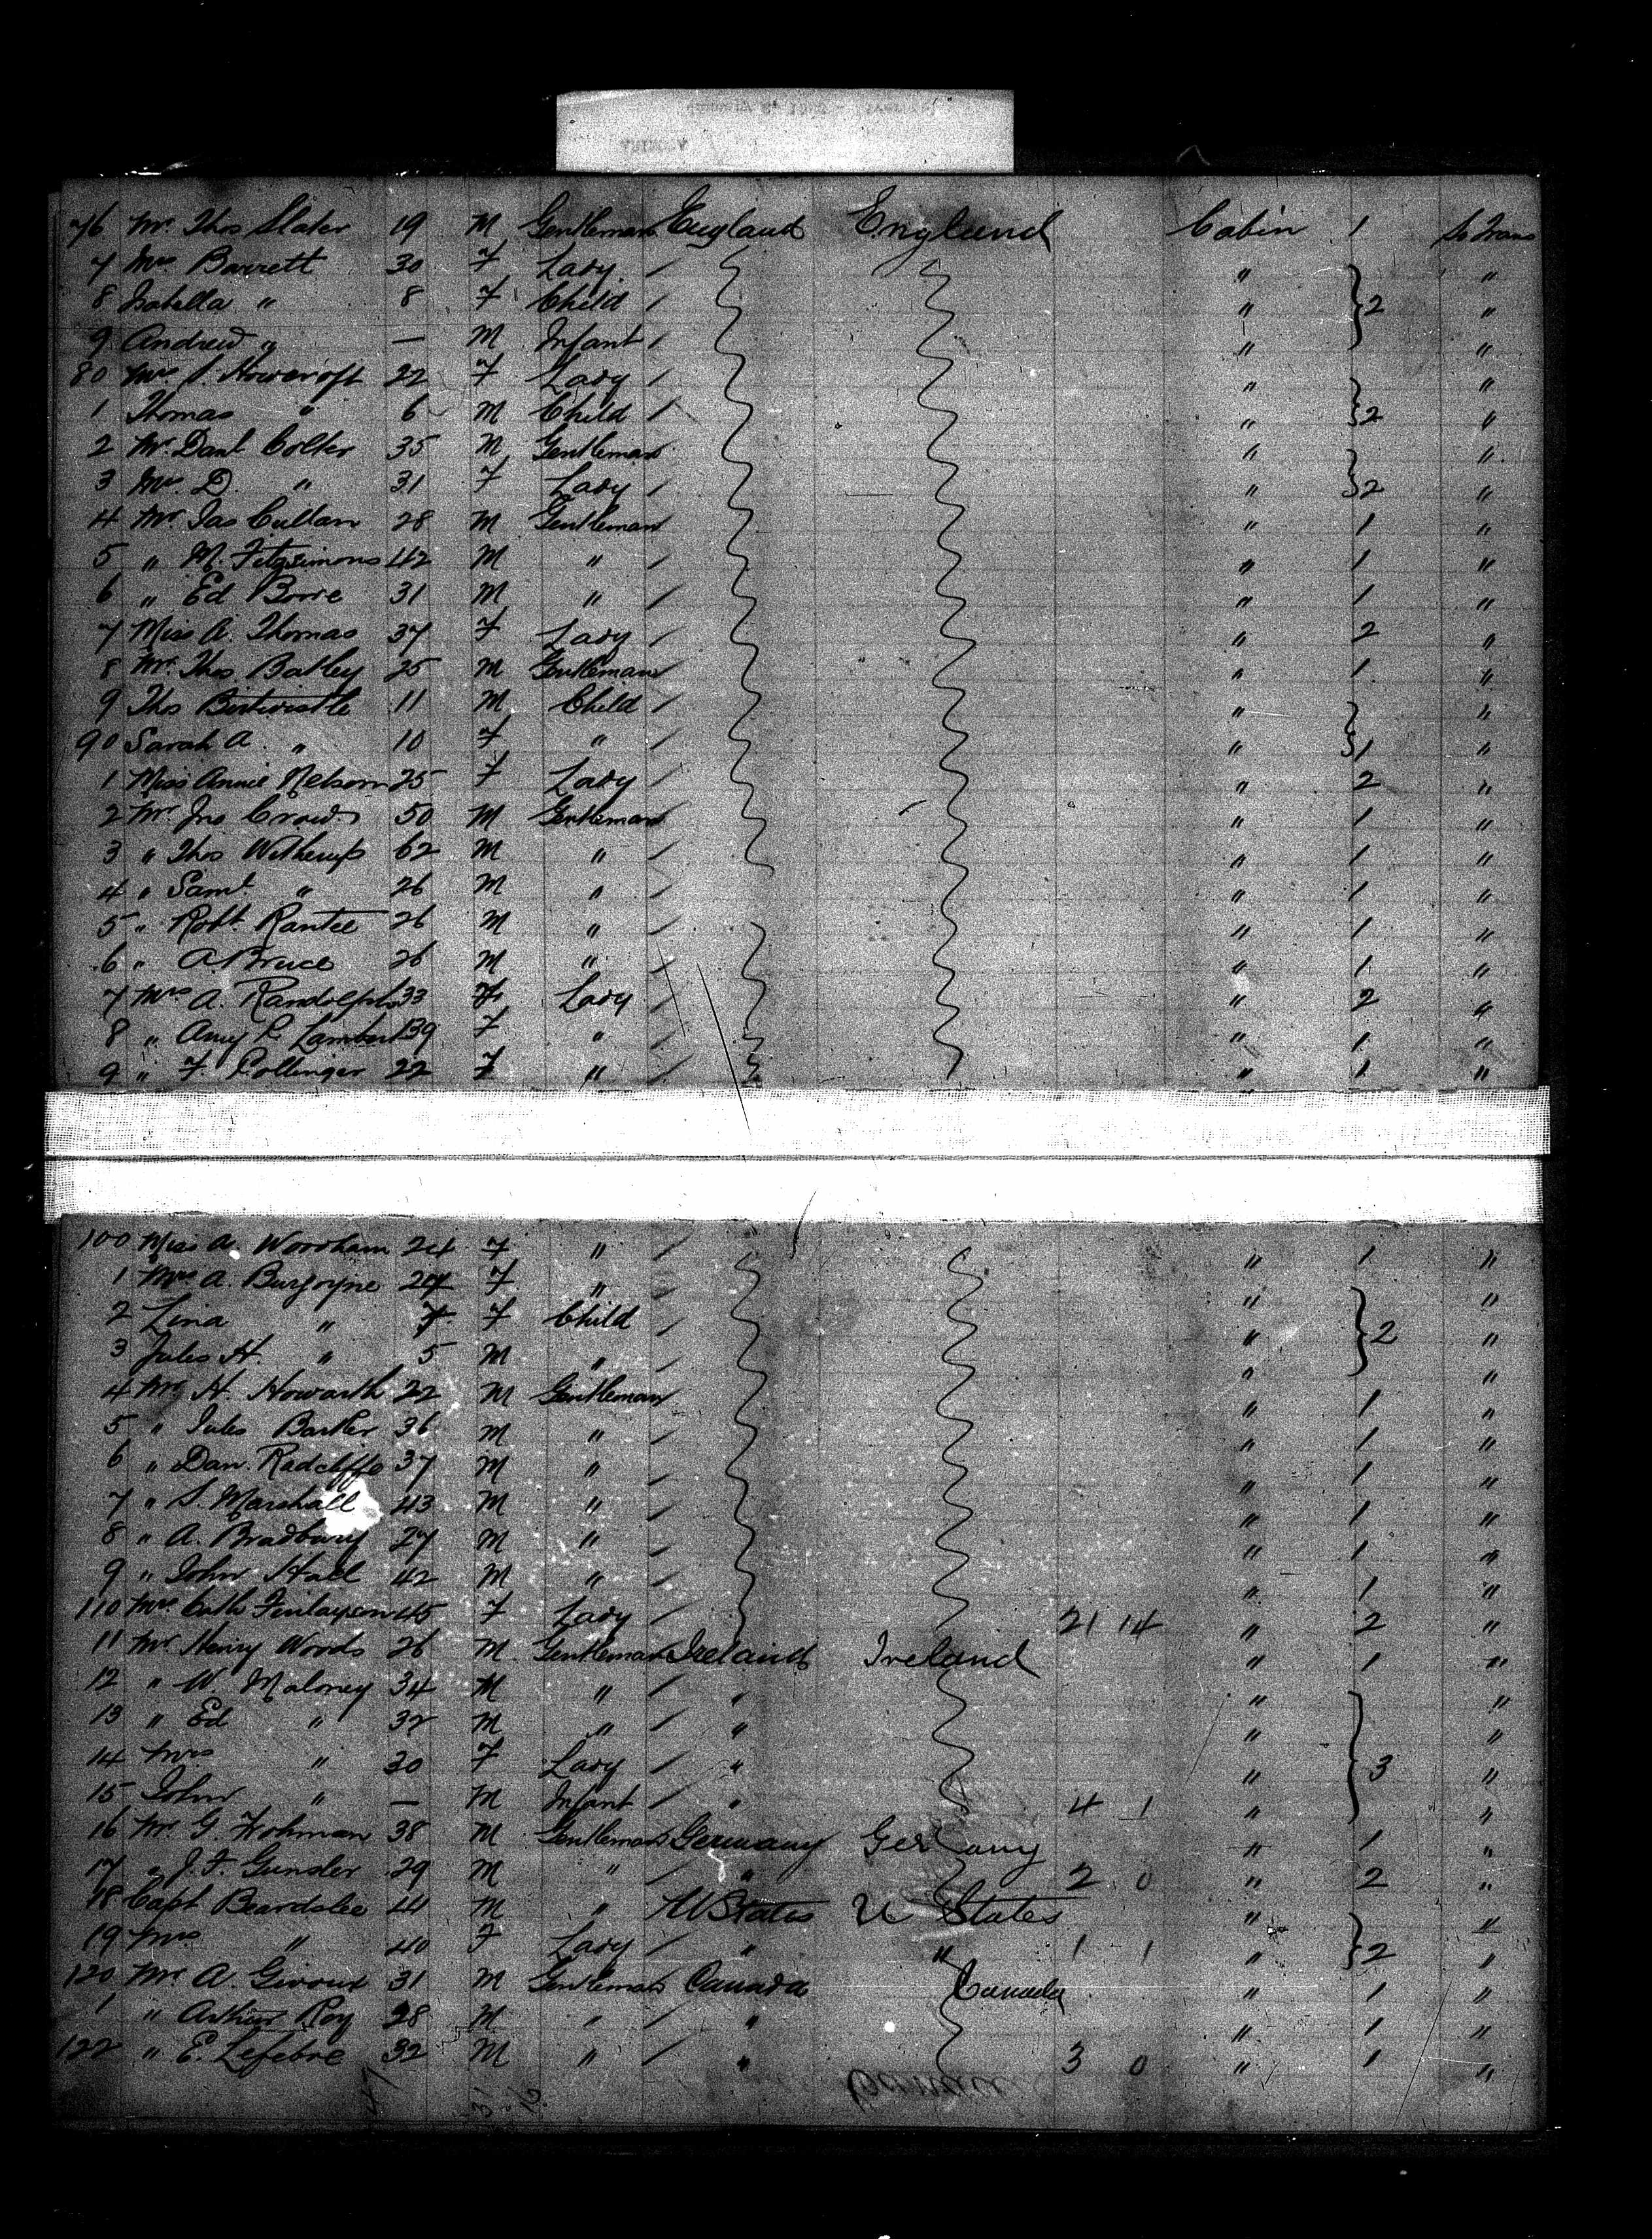 76 Mr. Thos Slater 19 M Gentleman England England Cabin 1
7 Mrs Barrett 30 F Lady " "
8 Isabella " 8 F Child " 2 "
9 Andrew " — M Infant " "
80 Mrs S. Howcroft 22 F Lady " "
1 Thomas " 6 M Child " 2 "
2 Mr. Danl Colter 35 M Gentleman " "
3 Mrs D. " 31 F Lady " 2 "
4 Mr Jas Cullan 28 M Gentleman " 1 "
5 " M. Fitzsimons 42 M " " 1 "
6 " Ed 31 M " " 1 "
7 Miss A. Thomas 37 F Lady " 2 "
8 Mr. Thos Batley 25 M Gentleman " 1 "
9 Thos Birtwistle 11 M Child " "
90 Sarah A. " 10 F " " 1 "
1 Miss Annie Nelson 25 F Lady " 2 "
2 Mr. Jno 50 M Gentleman " 1 "
3 " Thos Witherup 62 M " " 1 "
4 " Saml " 26 M " " 1 "
5 " Robt. Rantee 26 M " " 1 "
6 " A. Bruce 26 M " " 1 "
7 Mrs A. Randolph 33 F Lady " 2 "
8 " Amy Lambert 39 F " " 1 "
9 " F. Pollinger 22 F " " 1 "
100 Miss A. Woodham 24 F " " 1 "
1 Mrs A. Burgoyne 27 F " " "
2 Lina " 7 F Child " 2 "
3 Jules H. " 5 M " " "
4 Mr H. Howarth 22 M Gentleman " 1 "
5 " Jules Barker 36 M " " 1 "
6 " Dan. Radcliffe 37 M " " 1 "
7 " S. Marshall 43 M " " 1 "
8 " A. Bradbury 27 M " " 1 "
9 " John Hall 42 M " " 1 "
110 Mrs. Cath Finlayson 45 F Lady 21 14 " 2 "
11 Mr Henry Woods 26 M Gentleman Ireland Ireland " 1 "
12 " W. Maloney 34 M " " " "
13 " Ed " 32 M " " " "
14 Mrs " 30 F Lady " " 3 "
15 John " — M Infant " 4 1 " "
16 Mr. G. Hohman 38 M Gentleman Germany Germany " 1 "
17 " J. F. Gunsler 29 M " " 2 0 " 2 "
18 Capt Beardslee 41 M " U States U States " "
19 Mrs " 40 F Lady " " 1 1 " 2 "
120 Mr A. Giroux 31 M Gentleman Canada Canada " 1 "
1 " Arthur Roy 28 M " " " 1 "
122 " E. Lefebre 32 M " " 3 0 " 1 "